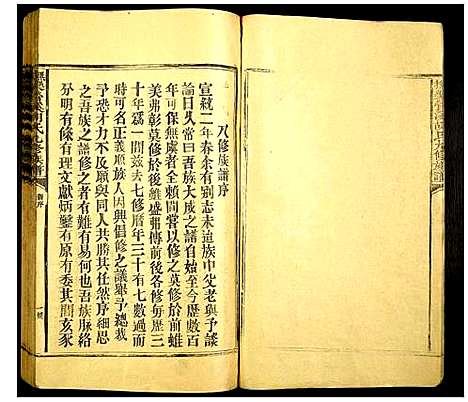 八修族譜序
宣統二年春余有別志未迨族中父老與予謀
諭曰久常曰吾族大成之譜自始至今歷數百
年可保無虞者全賴間嘗以修之英修於前雖
美弗彰莫修於後雖盛弗傳前後各修毋歷三
十年爲一間玆去七修曆年三十有七數過而
時可名正義順族人因興倡修之議舉予總裁
予恐才力不及原與同人共勝其任然序細思
之吾族之譜修之者有難有易何也吾族脉絡
分明有條有理文獻炳鑿有原有委其間亥豕
族譜
序
一號
氏八修族譜